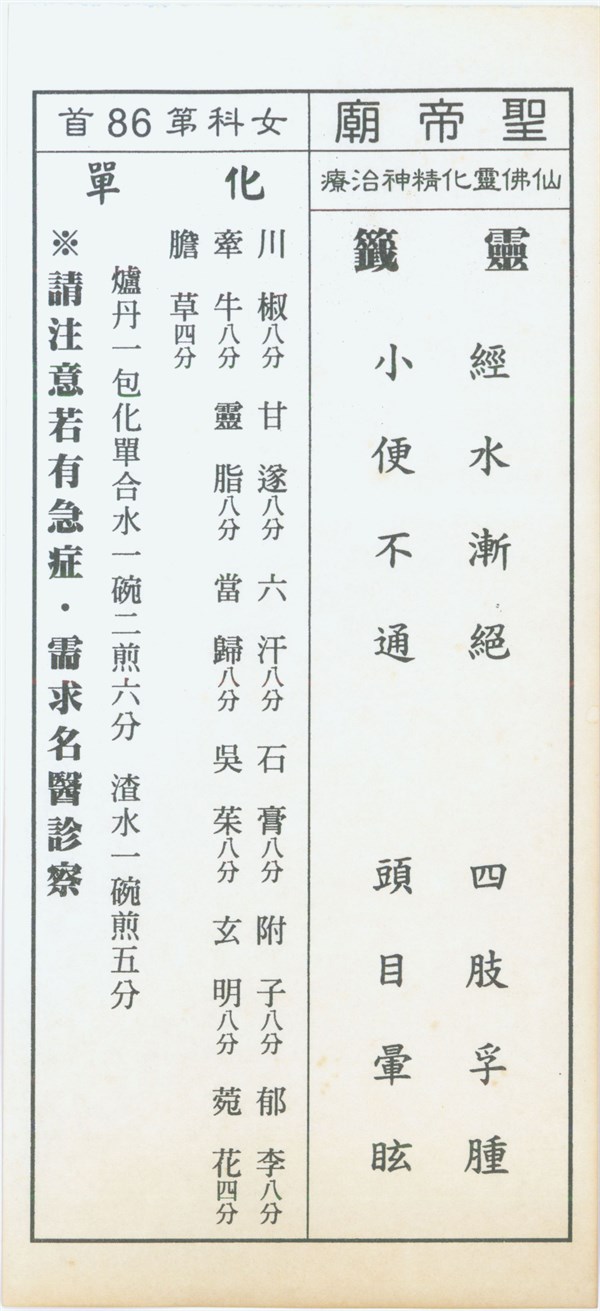 聖帝廟
仙佛靈化精神治療
靈籤
經水漸絕 四肢孚腫
小便不通 頭目暈眩
女科第86首
化單
川椒八分 甘遂八分 六汗八分 石膏八分 附子八分 郁李八分
牽牛八分 靈脂八分 當歸八分 吳茱八分 玄明八分 菀花四分
膽草四分
爐丹一包化單合水一碗二煎六分 渣水一碗煎五分
※請注意若有急症·需求名醫診察